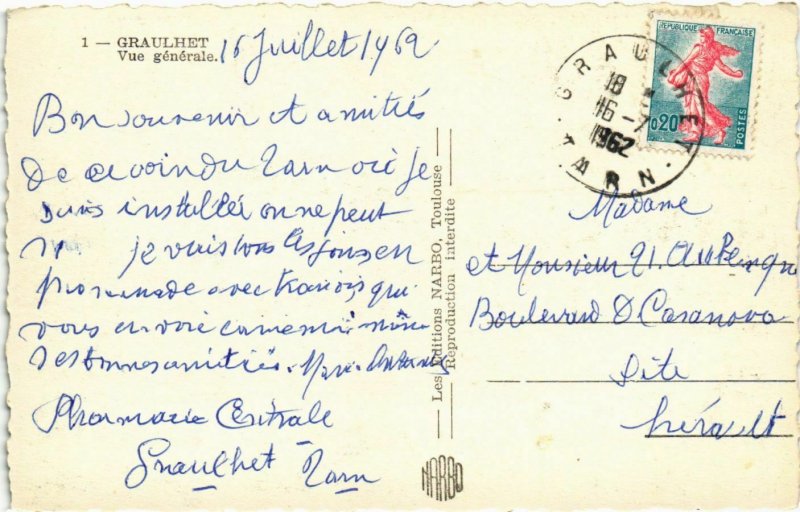 1 — GRAULHET
Vue générale.
16 Juillet 1962
Bon souvenir et amitiés
de ce coin du Tarn où je
suis installée on ne peut
je vais tous les jours en
promenade avec qui
vous envoie comme moi même
ses bonnes amitiés. Marie
Pharmacie Centrale
Graulhet Tarn
Les Editions NARBO, Toulouse
Reproduction interdite
NARBO
GRAULHET
18 *
16-7
1962
TARN
REPUBLIQUE FRANÇAISE
0,20
POSTES
Madame
et Monsieur
Boulevard D Casanova
Sète
hérault